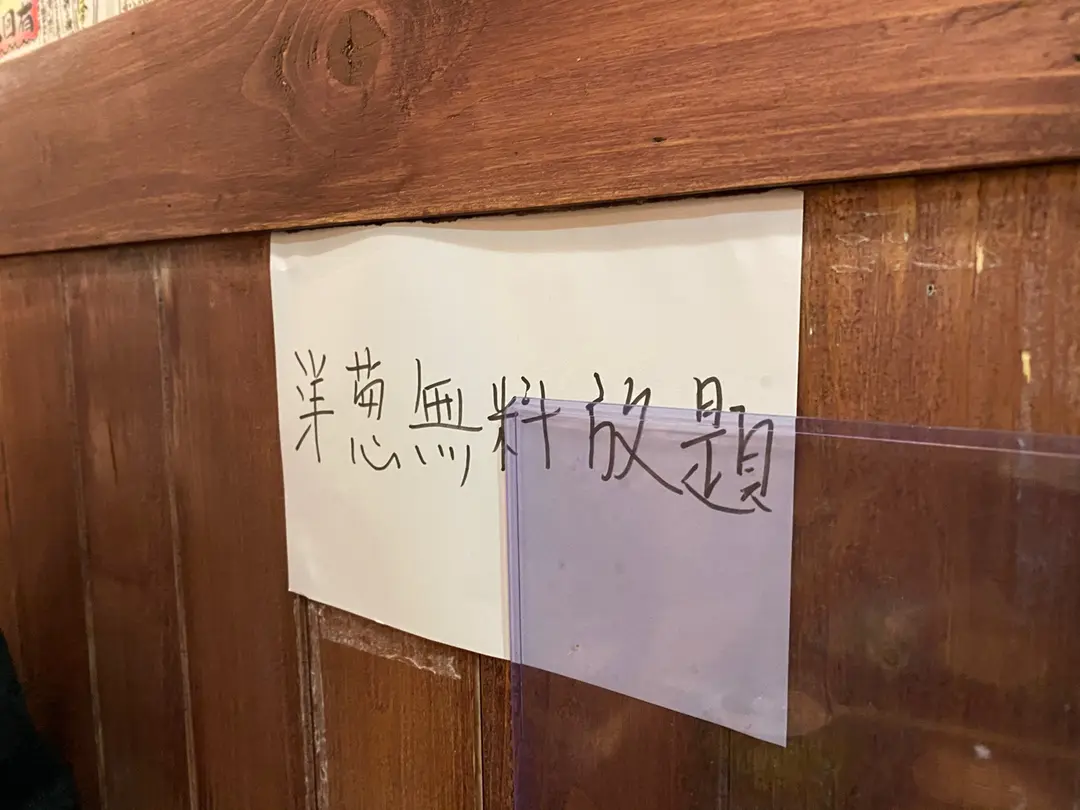 洋葱無料放題